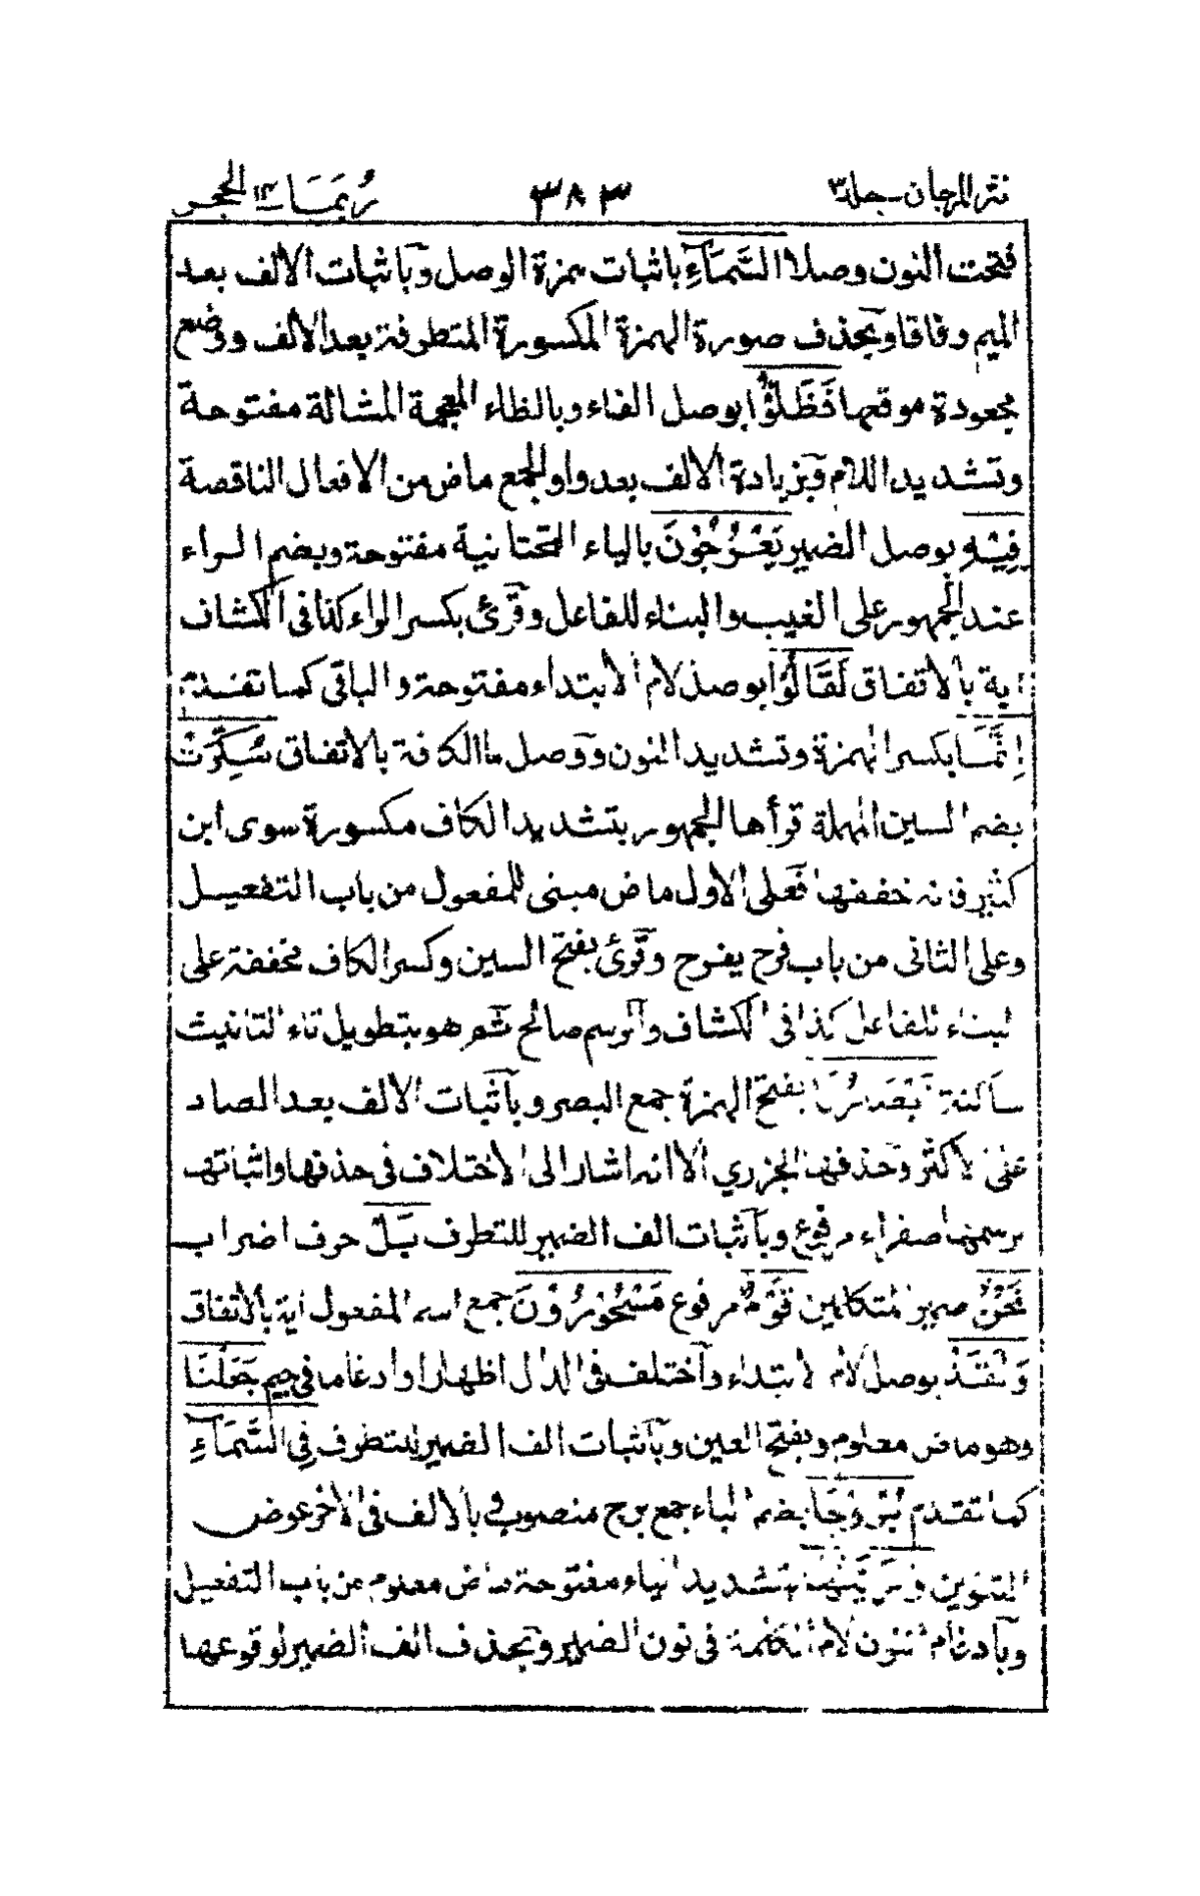 نثر المرجان - جلد ٣ ٣٨٣ رُبَمَا ١٤ الحجر
فتحت النون وصلا السَّمَآءِ باثبات همزة الوصل وبآثبات الالف بعد
الميم وفاقا وبحذف صورة الهمزة المكسورة المتطرفة بعد الالف ووضع
مجعودة موقعها فَظَلُّوْا بوصل الفاء وبالظاء المعجمة المشالة مفتوحة
وتشديد اللام وبزيادة الالف بعد واو الجمع ماض من الافعال الناقصة
فِيْهِ بوصل الضمير يَعْرُجُوْنَ بالياء التحتانية مفتوحة وبضم الراء
عند الجمهور على الغيب والبناء للفاعل وقرئ بكسر الراء كذا فى الكشاف
اية بالاتفاق لَقَالُوْا بوصل لام الابتداء مفتوحة والباقى كما تقدم
اِنَّمَا بكسر الهمزة وتشديد النون ووصل ما الكافة بالاتفاق سُكِّرَتْ
بضم السين المهملة قرأها الجمهور بتشديد الكاف مكسورة سوى ابن
كثير فانه خففها فعلى الاول ماض مبنى للمفعول من باب التفعيل
وعلى الثانى من باب فرح يفرح وقرئ بفتح السين وكسر الكاف مخففة على
البناء للفاعل كذا فى الكشاف والرسم صالح ثم هو بتطويل تاء التانيث
ساكنة اَبْصَارُنَا بفتح الهمزة جمع البصر وبآثبات الالف بعد الصاد
على الاكثر وحذفها الجزري الا انه اشار الى الاختلاف فى حذفها واثباتها
برسمها صفراء مرفوع وبآثبات الف الضمير للتطرف بَلْ حرف اضراب
نَحْنُ ضمير المتكلمين قَوْمٌ مرفوع مَسْحُوْرُوْنَ جمع اسم المفعول اية بالاتفاق
وَلَقَدْ بوصل لام الابتداء وآختلف فى الدال اظهارا وادغاما فى جيم جَعَلْنَا
وهو ماض معلوم وبفتح العين وبآثبات الف الضمير للتطرف فِى السَّمَآءِ
كما تقدم بُرُوْجًا بضم الباء جمع برج منصوب وبالالف فى الاخر عوض
التنوين وَزَيَّنّٰهَا بتشديد الياء مفتوحة ماض معلوم من باب التفعيل
وبآدغام النون لام الكلمة فى نون الضمير وبحذف الف الضمير لوقوعها